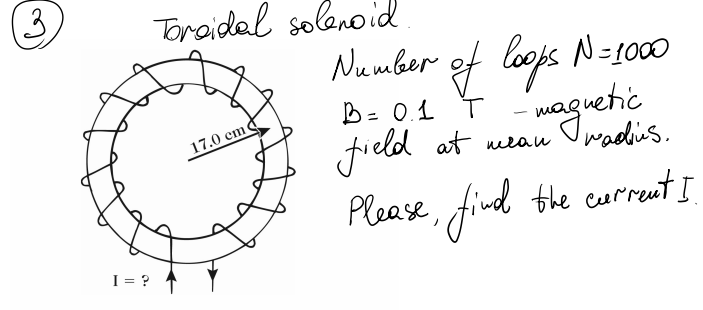 3
Toroidal solenoid.
Number of loops N=1000
B = 0.1 T - magnetic
field at mean radius.
17.0 cm
Please, find the current I.
I = ?